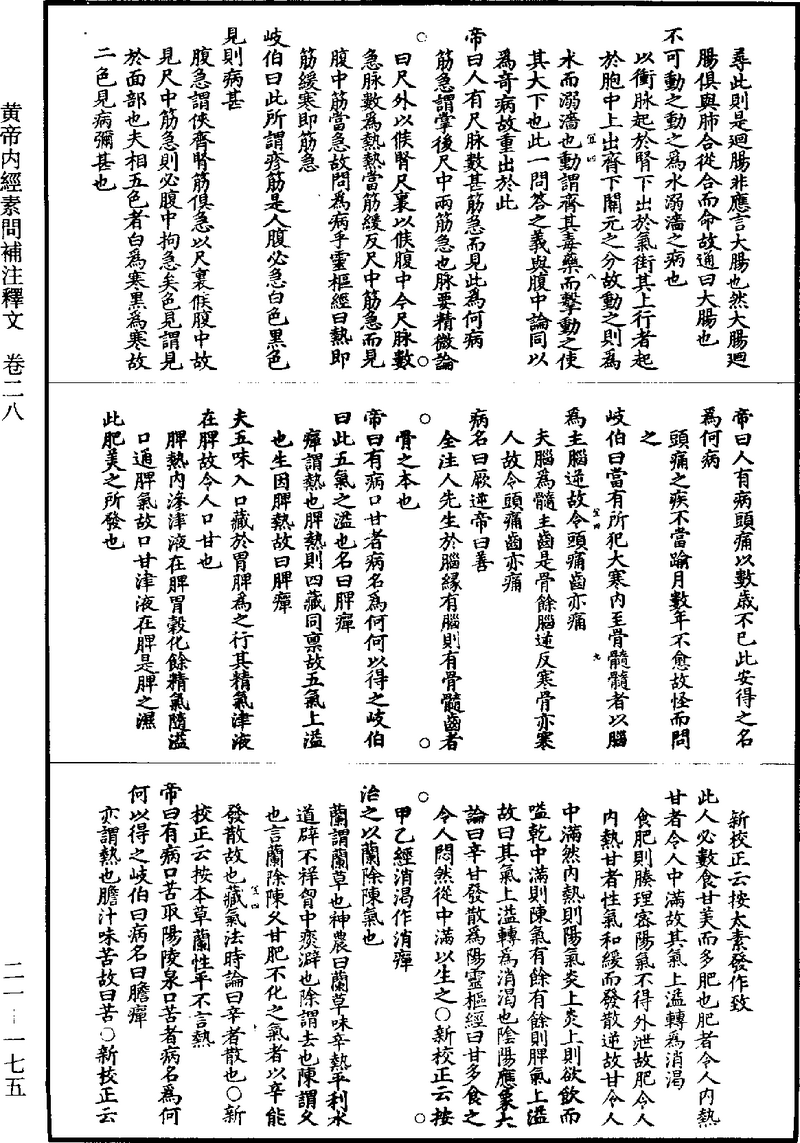 黃帝内經素問補注釋文　卷二八
二一－一七五
尋此則是迴腸非應言大腸也然大腸迴
腸俱與肺合從合而命故通曰大腸也
不可動之動之為水溺濇之病也
以衝脉起於腎下出於氣街其上行者起
於胞中上出齊下關元之分故動之則為
水而溺濇也動謂齊其毒藥而擊動之使
其大下也此一問荅之義與腹中論同以
為奇病故重出於此
帝曰人有尺脉數甚筋急而見此為何病
筋急謂掌後尺中兩筋急也脉要精微論
曰尺外以候腎尺裏以候腹中今尺脉數
急脉數為熱熱當筋緩反尺中筋急而見
腹中筋當急故問為病乎靈樞經曰熱即
筋緩寒即筋急
岐伯曰此所謂疹筋是人腹必急白色黑色
見則病甚
腹急謂俠齊腎筋俱急以尺裏候腹中故
見尺中筋急則必腹中拘急矣色見謂見
於面部也夫相五色者白為寒黑為寒故
二色見病彌甚也
帝曰人有病頭痛以數歲不已此安得之名
為何病
頭痛之疾不當踰月數年不愈故怪而問
之
岐伯曰當有所犯大寒内至骨髓髓者以腦
為主腦逆故令頭痛齒亦痛
夫腦為髓主齒是骨餘腦逆反寒骨亦寒
人故令頭痛齒亦痛
病名曰厥逆帝曰善
全注人先生於腦緣有腦則有骨髓齒者
骨之本也
帝曰有病口甘者病名為何何以得之岐伯
曰此五氣之溢也名曰脾癉
癉謂熱也脾熱則四藏同禀故五氣上溢
也生因脾熱故曰脾癉
夫五味入口藏於胃脾為之行其精氣津液
在脾故令人口甘也
脾熱内滲津液在脾胃穀化餘精氣隨溢
口通脾氣故口甘津液在脾是脾之濕
此肥美之所發也
新校正云按太素發作致
此人必數食甘美而多肥也肥者令人内熱
甘者令人中滿故其氣上溢轉為消渴
食肥則腠理密陽氣不得外泄故肥令人
内熱甘者性氣和緩而發散逆故甘令人
中滿然内熱則陽氣炎上炎上則欲飲而
嗌乾中滿則陳氣有餘有餘則脾氣上溢
故曰其氣上溢轉為消渴也陰陽應象大
論曰辛甘發散為陽靈樞經曰甘多食之
令人悶然從中滿以生之○新校正云按
甲乙經消渴作消癉
治之以蘭除陳氣也
蘭謂蘭草也神農曰蘭草味辛熱平利水
道辟不祥胷中痰澼也除謂去也陳謂久
也言蘭除陳久甘肥不化之氣者以辛能
發散故也藏氣法時論曰辛者散也○新
校正云按本草蘭性平不言熱
帝曰有病口苦取陽陵泉口苦者病名為何
何以得之岐伯曰病名曰膽癉
亦謂熱也膽汁味苦故曰苦○新校正云